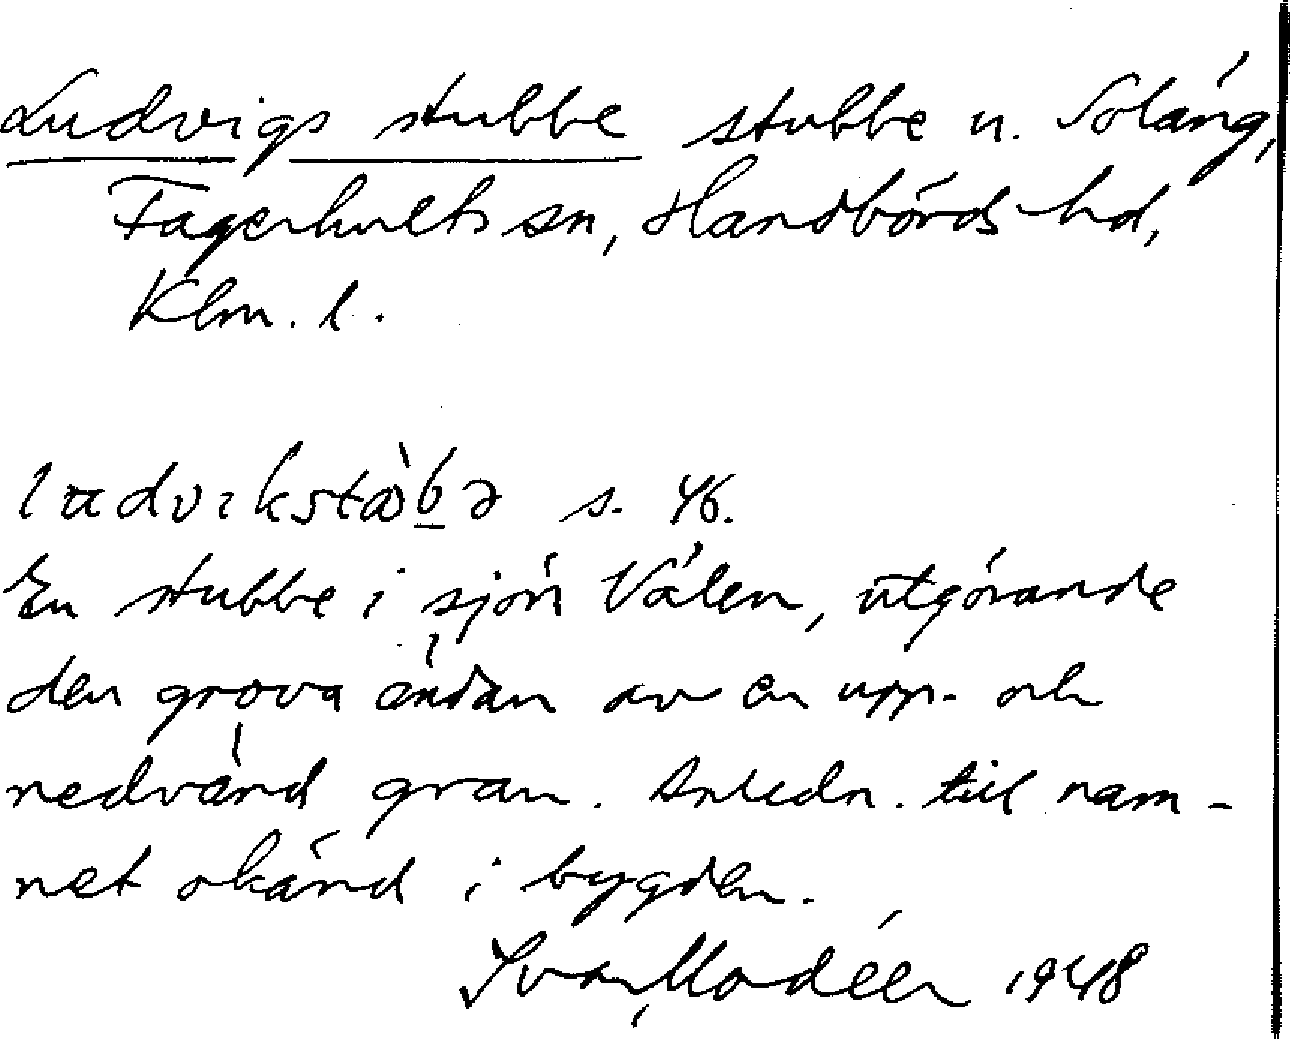 Ludvigs stubbe stubbe u. Soläng,
Fagerhults sn, Handbörds hd,
Klm. l.
s. 46.
En stubbe i sjön Välen, utgörande
den grova ändan av en upp- och
nedvänd gran. Anledn. till nam-
net okänd i bygden.
Ivar Modéer 1948